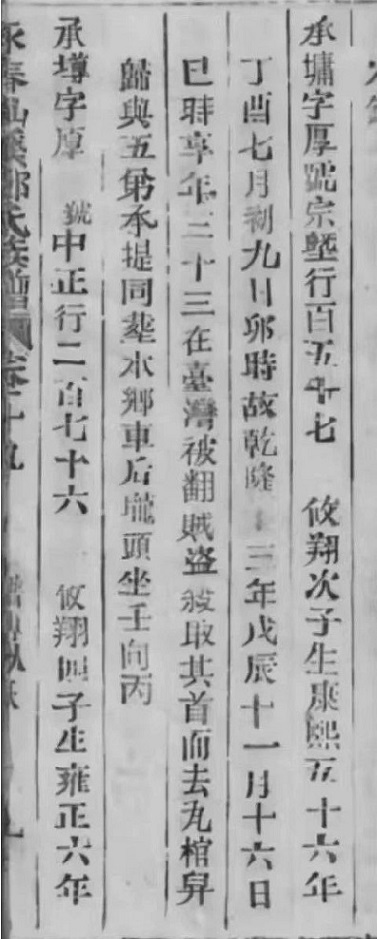 承墉字厚號宗塈行百五十七 攸翔次子生康熙五十六年
丁酉七月初九日卯時故乾隆十三年戊辰十一月十六日
巳時享年三十三在臺灣被翻賊盜殺取其首而去丸棺舁
歸與五弟承堤同塟本鄉車后壠頭坐壬向丙
承墫字厚 號中正行二百七十六 攸翔四子生雍正六年
永春 氏族譜 卷十九